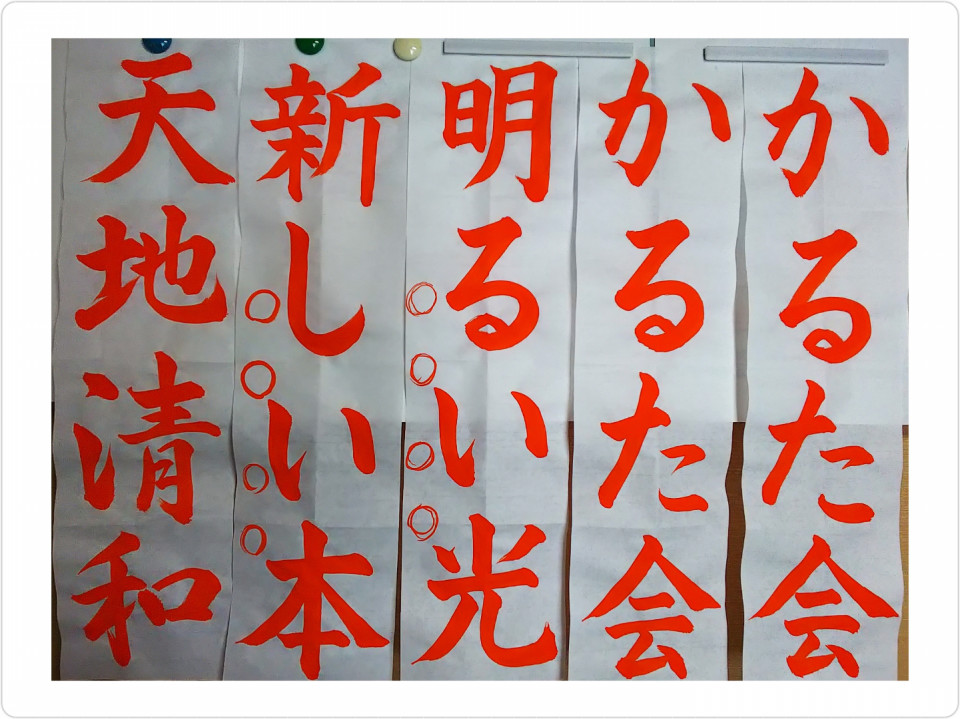 かるた会
かるた会
明るい光
新しい本
天地清和